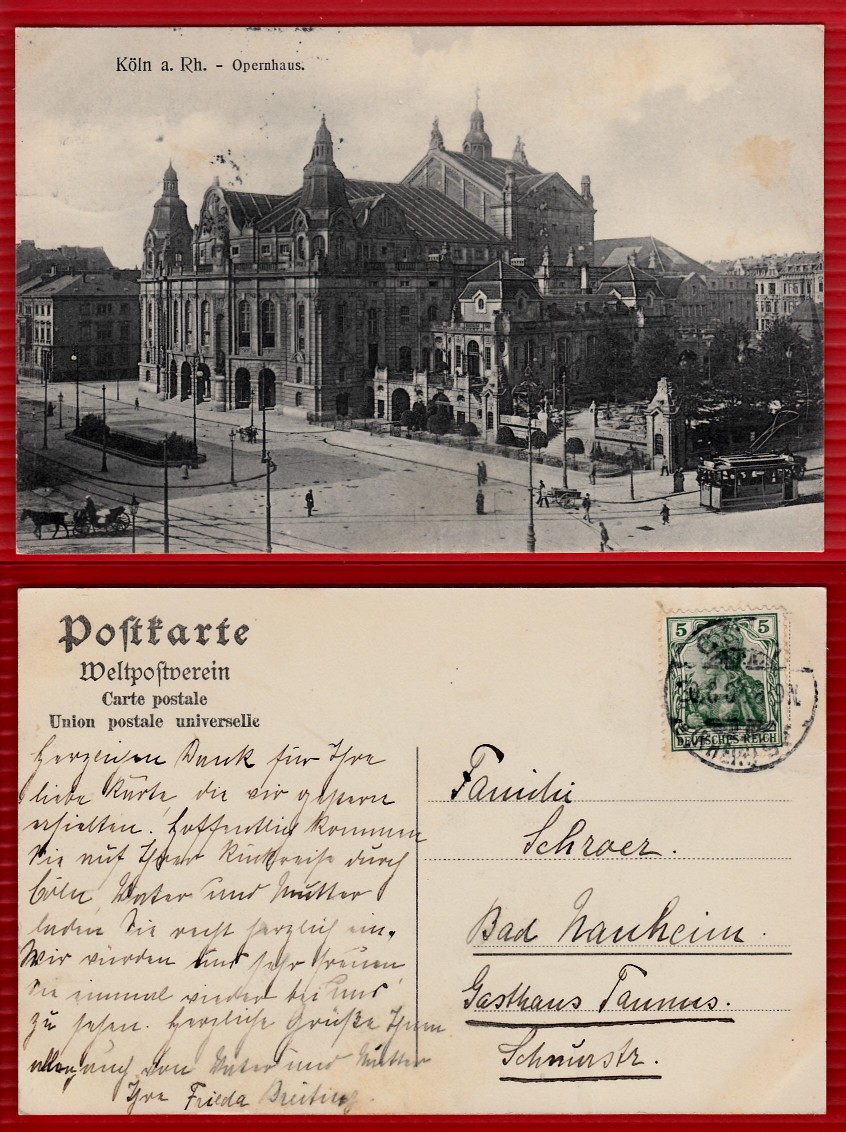 Köln a. Rh. - Opernhaus.
Postkarte
Weltpostverein
Carte postale
Union postale universelle
5 5
DEUTSCHES REICH
Herzlichen Dank für Ihre
liebe Karte die wir gestern
erhielten. Hoffentlich kommen
Sie auf Ihrer Rückreise durch
Cöln, Vater und Mutter
laden Sie recht herzlich ein.
Wir würden uns sehr freuen
Sie einmal wieder bei uns
zu sehen. Herzliche Grüße Ihnen
allen auch von Vater und Mutter
Ihre Frieda Breiting.
Familie
Schroer.
Bad Nauheim.
Gasthaus Taunus.
Schnurstr.